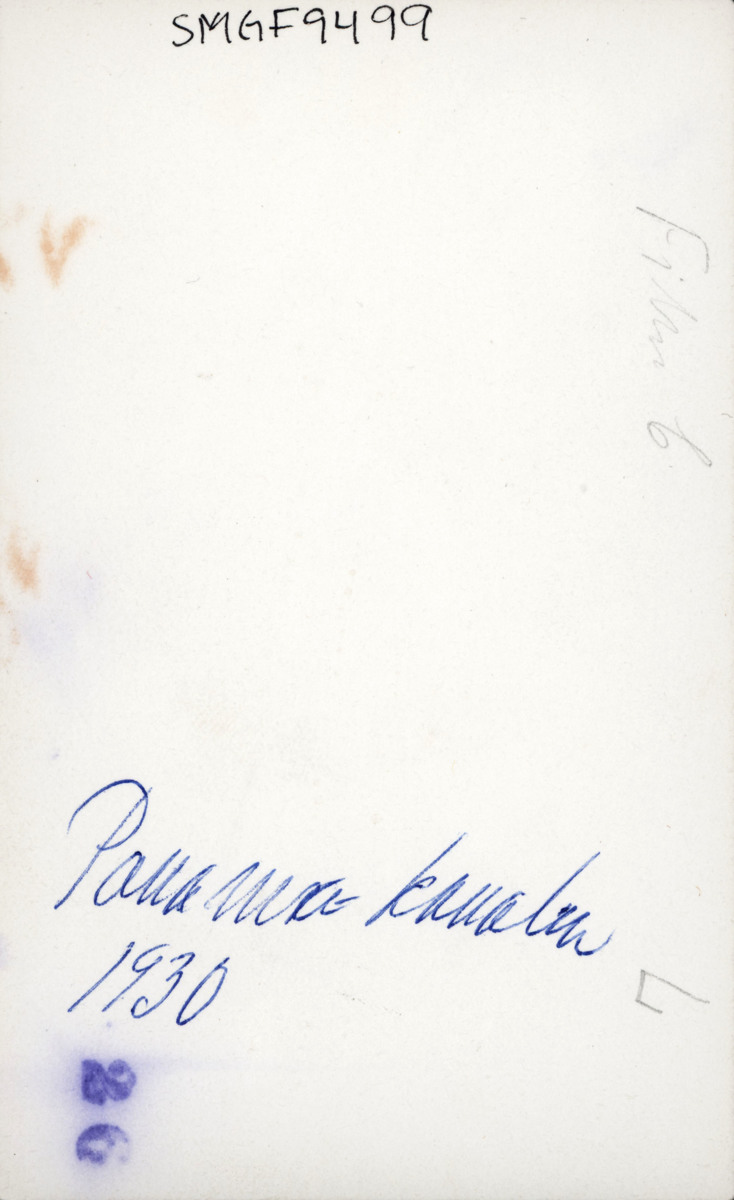 SMGF9499
Film 6
Panama-kanalen
1930
L
26